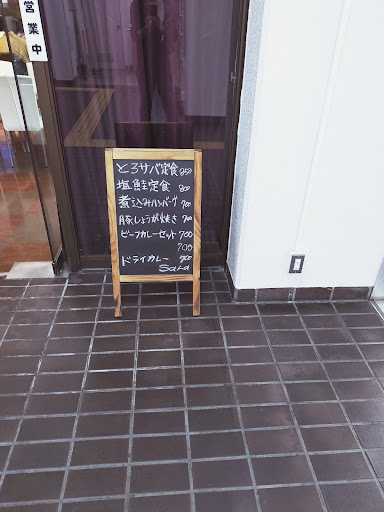 営業中
とろサバ定食 850
塩鮭定食 800
煮込みハンバーグ 700
豚しょうが焼き 700
ビーフカレーセット 700
700
ドライカレー 900
Sara